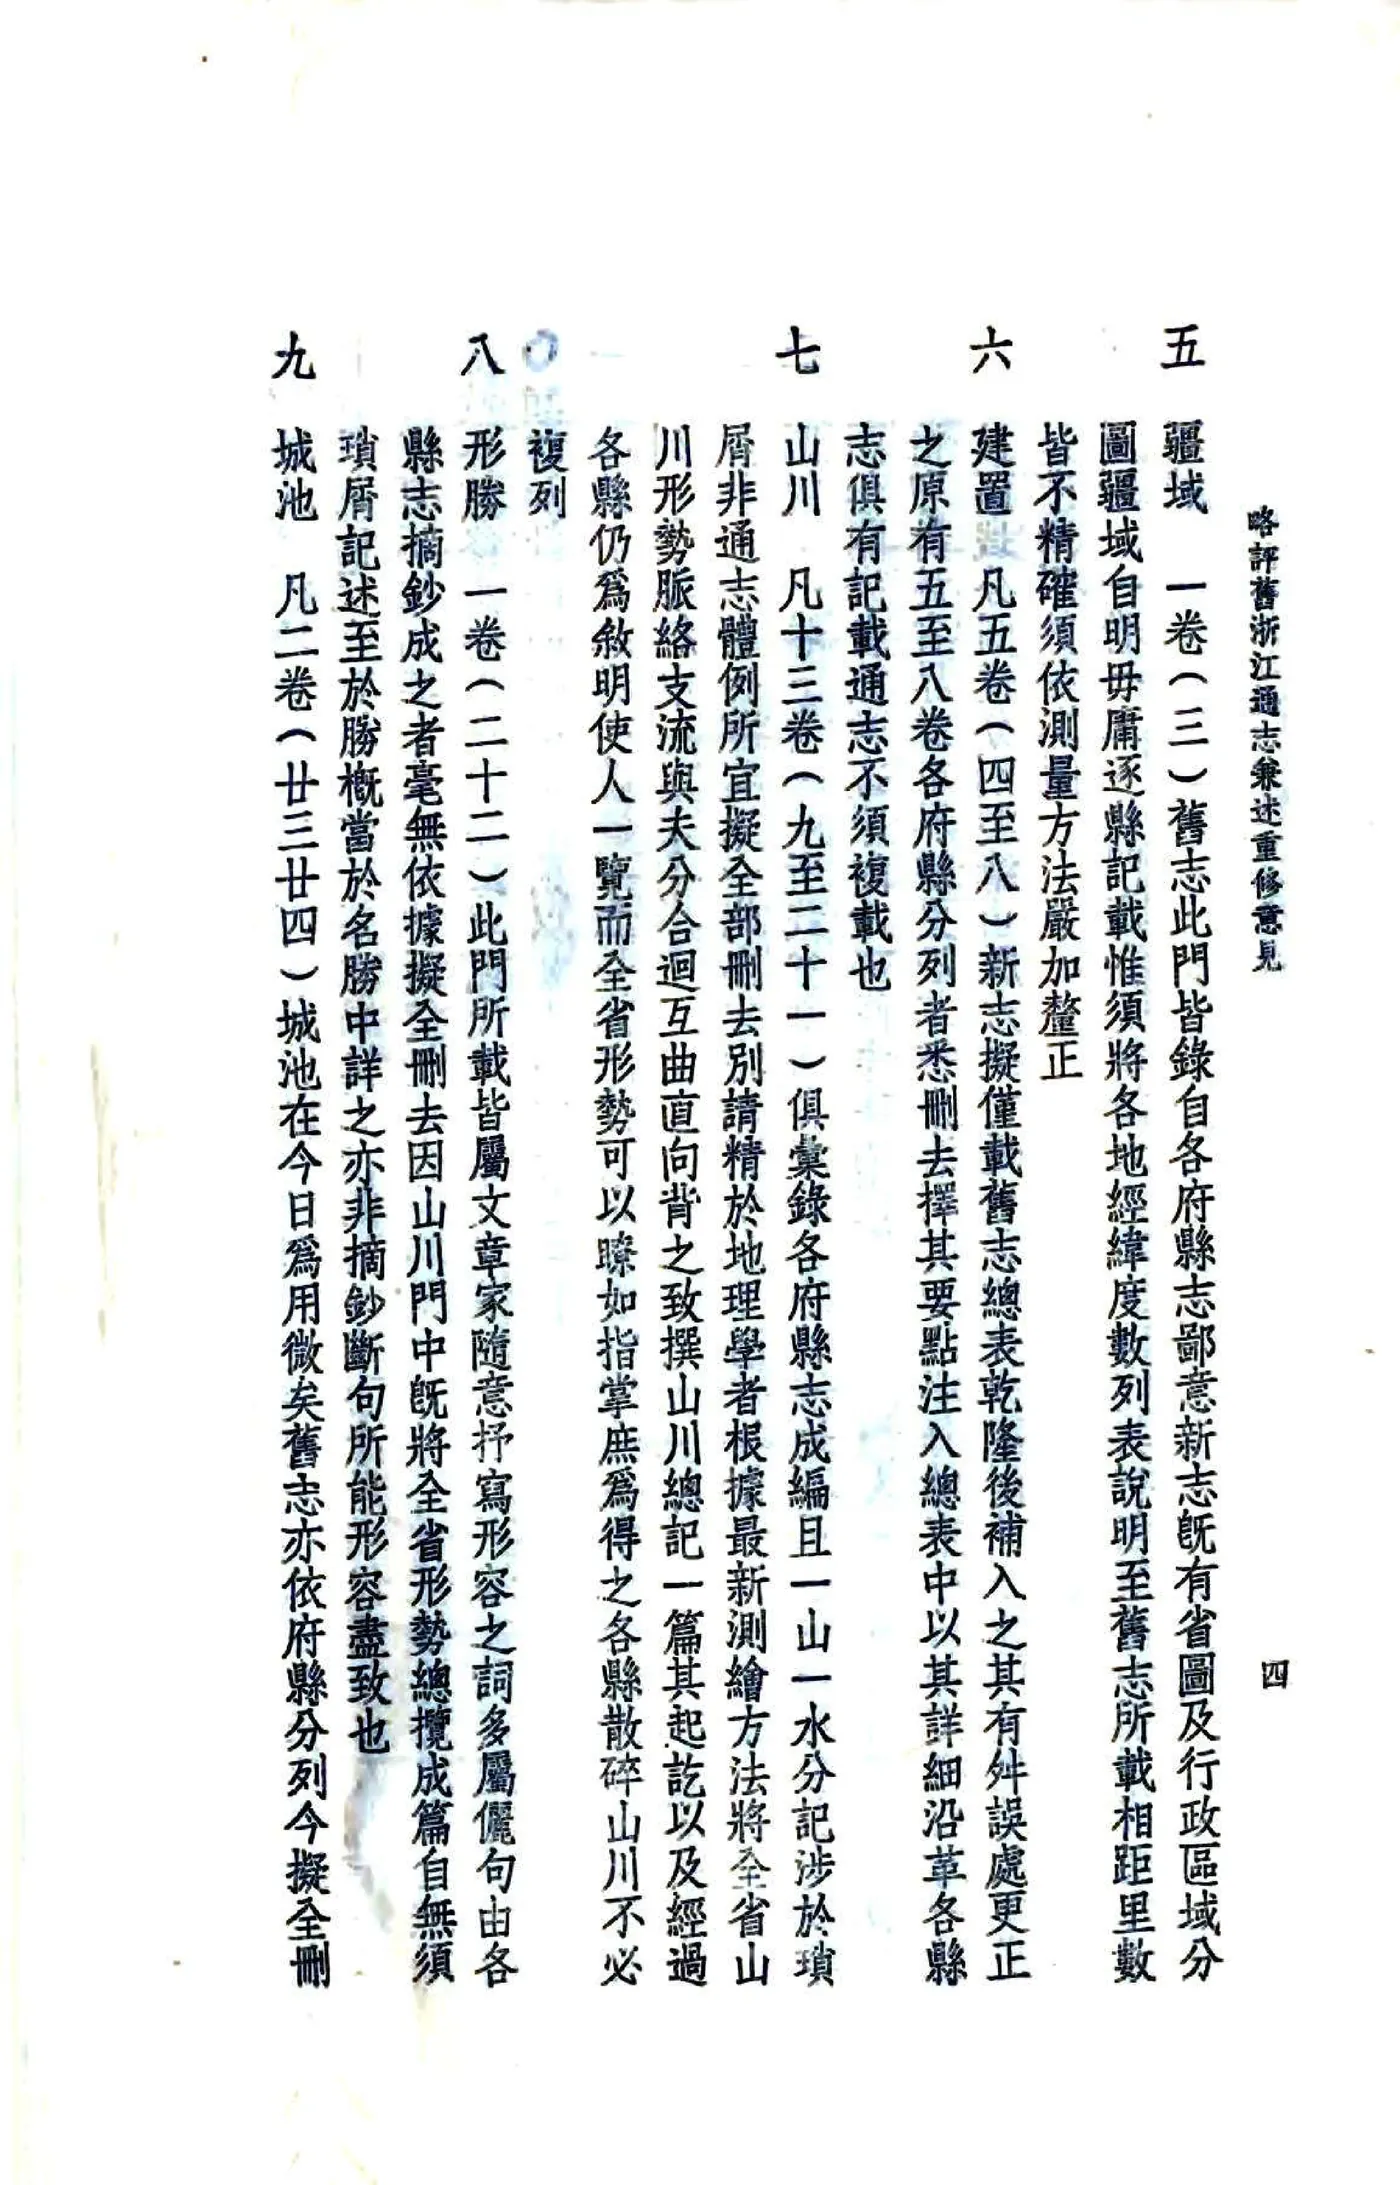 略評舊浙江通志兼述重修意見
四
五　疆域　一卷(三)舊志此門皆錄自各府縣志鄙意新志旣有省圖及行政區域分
圖疆域自明毋庸逐縣記載惟須將各地經緯度數列表說明至舊志所載相距里數
皆不精確須依測量方法嚴加釐正
六　建置　凡五卷(四至八)新志擬僅載舊志總表乾隆後補入之其有舛誤處更正
之原有五至八卷各府縣分列者悉刪去擇其要點注入總表中以其詳細沿革各縣
志俱有記載通志不須複載也
七　山川　凡十三卷(九至二十一)俱彙錄各府縣志成編且一山一水分記涉於瑣
屑非通志體例所宜擬全部刪去別請精於地理學者根據最新測繪方法將全省山
川形勢脈絡支流與夫分合迴互曲直向背之致撰山川總記一篇其起訖以及經過
各縣仍爲敘明使人一覽而全省形勢可以瞭如指掌庶爲得之各縣散碎山川不必
複列
八　形勝　一卷(二十二)此門所載皆屬文章家隨意抒寫形容之詞多屬儷句由各
縣志摘鈔成之者毫無依據擬全刪去因山川門中旣將全省形勢總攬成篇自無須
瑣屑記述至於勝槪當於名勝中詳之亦非摘鈔斷句所能形容盡致也
九　城池　凡二卷(廿三廿四)城池在今日爲用微矣舊志亦依府縣分列今擬全刪